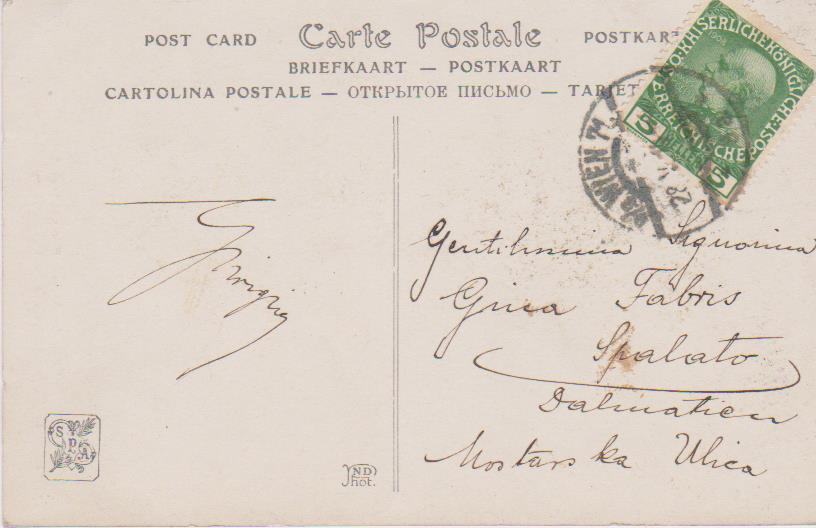 POST CARD Carte Postale POSTKAR
BRIEFKAART — POSTKAART
CARTOLINA POSTALE — ОТКРЫТОЕ ПИСЬМО — TARJET
KAISERLICHEKÖNIGLICHE
ÖSTERREICHISCHEPOST
1908
5 HELLER 5
WIEN 71
28
Gentilissima Signorina
Gina Fabris
Spalato
Dalmatien
Mostarska Ulica
S P A
ND
Phot.